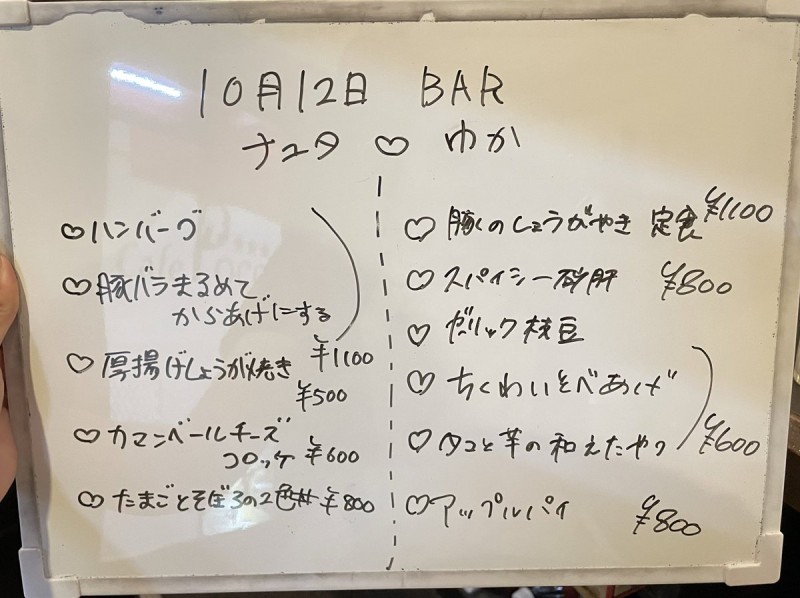 10月12日 BAR
ナユタ ♡ ゆか
♡ハンバーグ
♡豚バラまるめて
からあげにする
¥1100
♡厚揚げしょうが焼き
¥500
♡カマンベールチーズ
コロッケ ¥600
♡たまごとそぼろの2色丼 ¥800
♡豚くのしょうがやき 定食 ¥1100
♡スパイシー砂肝 ¥800
♡ガリック枝豆
♡ちくわいそべあげ
♡タコと芋の和えたやつ ¥600
♡アップルパイ ¥800